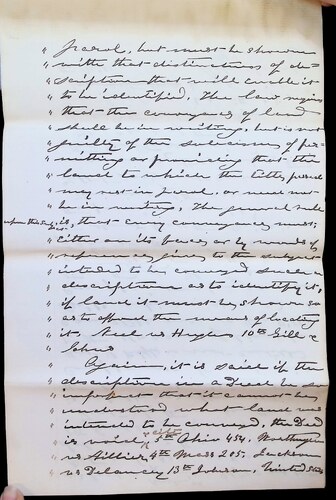 " parol, but must be shown
" with that distinctness of de-
" scription that will enable it
" to be identified. The law requires
" that the conveyance of land
" shall be in writing, but is not
" guilty of the of per-
" mitting or providing that the
" land to which the title passes
" may rest in parol, or need not
" be in writing. The general rule
upon this subject
" is, that every conveyance must,
" either on its face or by words of
" reference, give to the subject
" intended to be conveyed such a
" description as to identify it,
" if land it must be shown so
" as to afford the means of locating
" it. vs Hughes 10th Gill &
" Johns
" Again, it is said if the
" description in a Deed be so
" imperfect that it cannot be
" understood what land was
" intended to be conveyed, the Deed
" is void, 5th Ohio 454. Worthington
" vs Hillier, 4th Mass 205. Jackson
" vs Delancey 13th Johnson, United States